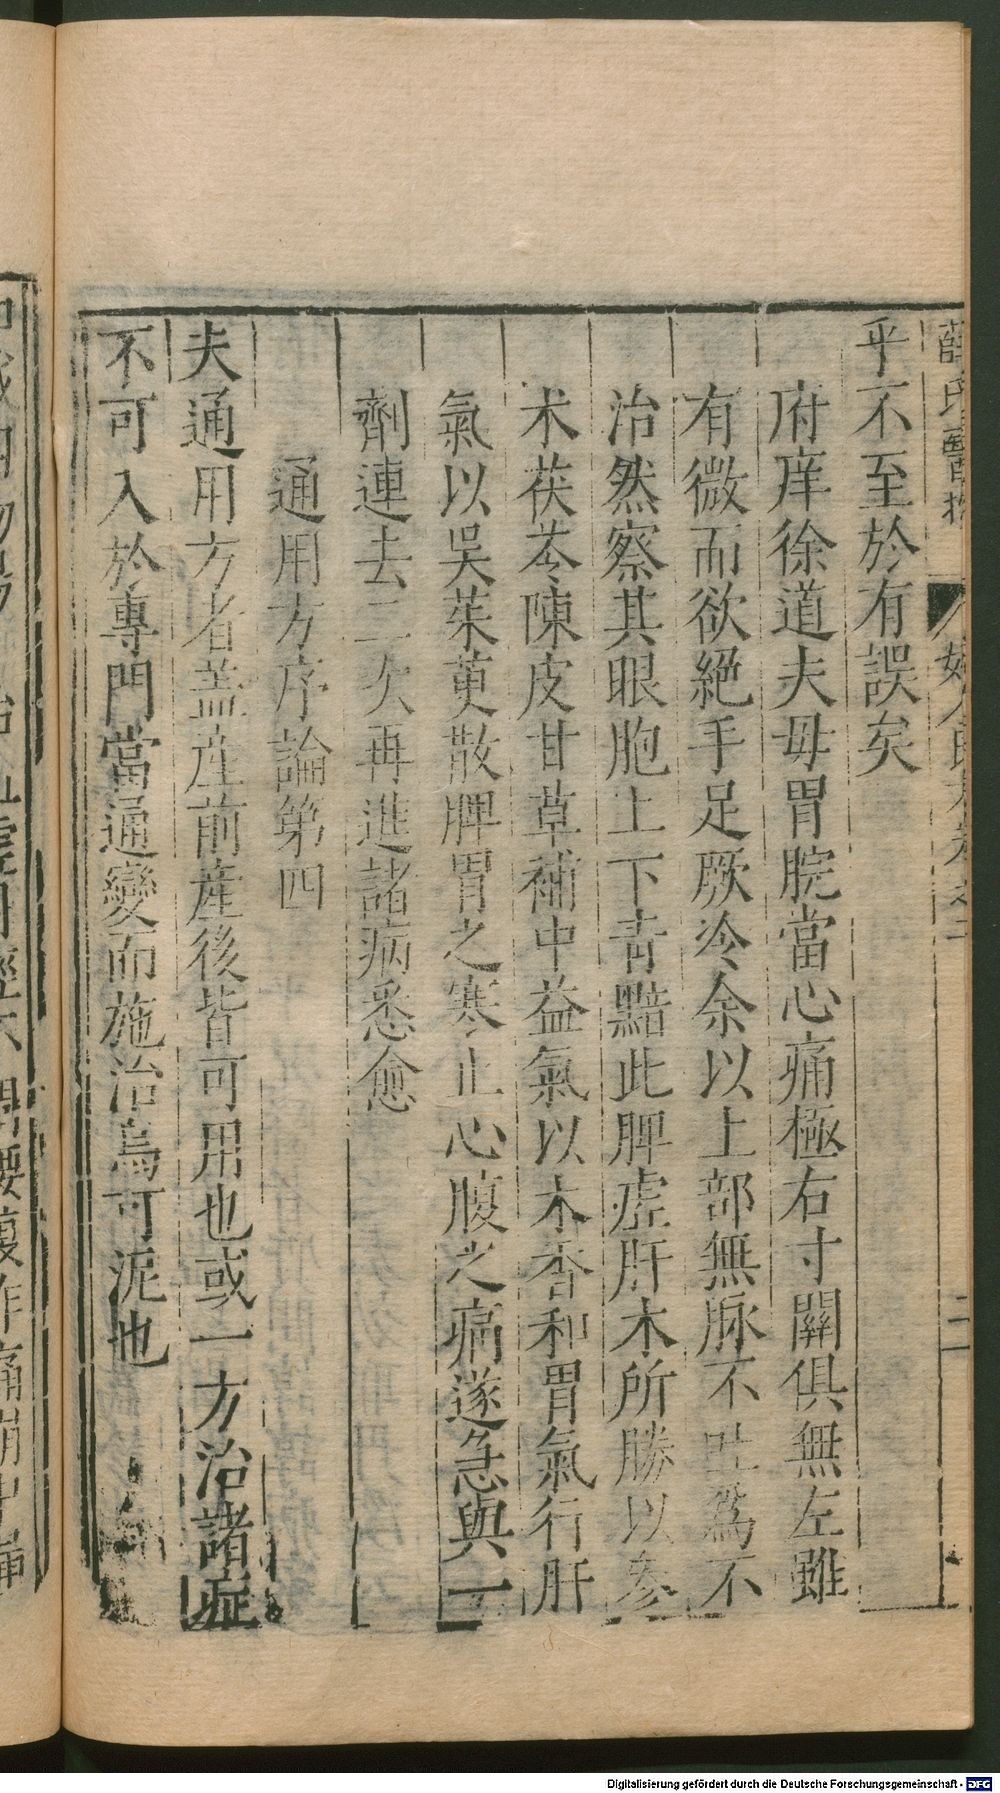 薛氏醫按　婦人良方卷之二　二一
乎不至於有誤矣
府庠徐道夫母胃脘當心痛極右寸關俱無左雖
有微而欲絕手足厥冷余以上部無脉不吐爲不
治然察其眼胞上下青黯此脾虚肝木所勝以參
术茯苓陳皮甘草補中益氣以木香和胃氣行肝
氣以吴茱萸散脾胃之寒止心腹之痛遂急與一
劑連去二次再進諸病悉愈
通用方序論第四
夫通用方者盖産前産後皆可用也或一方治諸症
不可入於專門當通變而施治烏可泥也
Digitalisierung gefördert durch die Deutsche Forschungsgemeinschaft - DFG